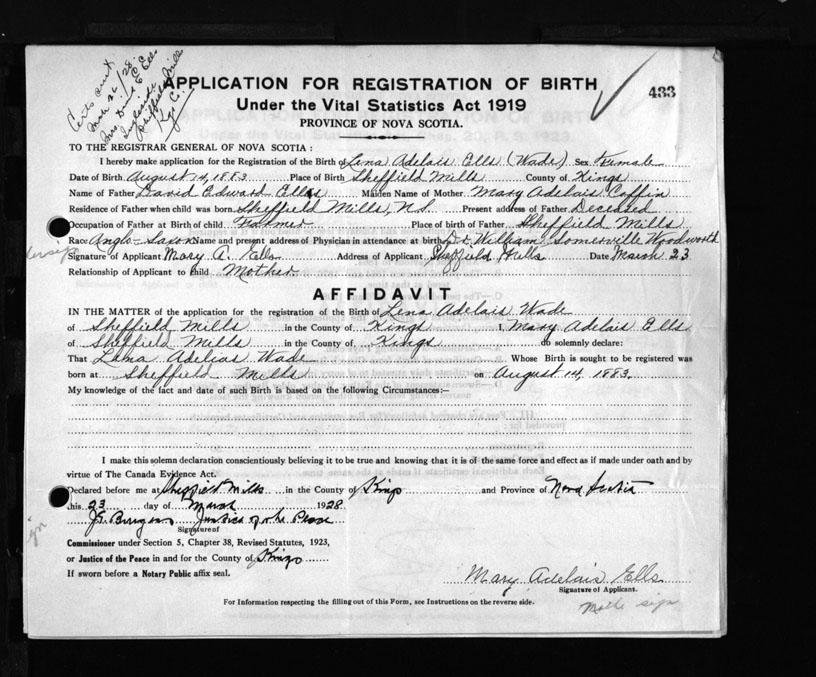 Certs sent
Mar 26/28
Mrs David E Ells
Sheffield Mills
Kgs Co.
APPLICATION FOR REGISTRATION OF BIRTH
433
Under the Vital Statistics Act 1919
PROVINCE OF NOVA SCOTIA.
TO THE REGISTRAR GENERAL OF NOVA SCOTIA:
I hereby make application for the Registration of the Birth of Lena Adelais Ells (Wade) Sex Female
Date of Birth August 14, 1883 Place of Birth Sheffield Mills County of Kings
Name of Father David Edward Ells Maiden Name of Mother Mary Adelais Coffin
Residence of Father when child was born Sheffield Mills, N.S. Present address of Father Deceased
Occupation of Father at Birth of child Farmer Place of birth of Father Sheffield Mills
Race Anglo-Saxon Name and present address of Physician in attendance at birth Dr. William Somerville Woodworth
Signature of Applicant Mary A. Ells Address of Applicant Sheffield Mills Date March 23
Relationship of Applicant to Child Mother
AFFIDAVIT
IN THE MATTER of the application for the registration of the Birth of Lena Adelais Wade
of Sheffield Mills in the County of Kings I, Mary Adelais Ells
of Sheffield Mills in the County of, Kings do solemnly declare:
That Lena Adelias Wade Whose Birth is sought to be registered was
born at Sheffield Mills on August 14, 1883.
My knowledge of the fact and date of such Birth is based on the following Circumstances:—
I make this solemn declaration conscientiously believing it to be true and knowing that it is of the same force and effect as if made under oath and by
virtue of The Canada Evidence Act.
Declared before me at Sheffield Mills in the County of Kings and Province of Nova Scotia
this 23 day of March 1928
Justice of the Peace
Signature of
Commissioner under Section 5, Chapter 38, Revised Statutes, 1923,
or Justice of the Peace in and for the County of Kings
If sworn before a Notary Public affix seal.
Mary Adelais Ells
Signature of Applicant.
For Information respecting the filling out of this Form, see Instructions on the reverse side.